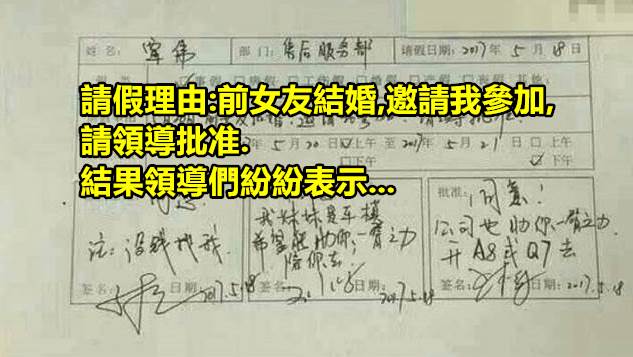 姓 名: 部 门: 售后服务部 请假日期: 2017年 5月 18日
事假 产假 其他:
請假理由:前女友結婚,邀請我參加,
請領導批准.
結果領導們紛紛表示...
5月 20日 上午 至 2017年 5月 21日 上午
下午 下午
注: 没钱找我.
签名: 日期: 2017.5.18
我妹妹是车模
希望能助你一臂之力
陪你去!
签名: 日期: 2017.5.18
批准: 同意!
公司也助你一臂之力
开A8或Q7去
签名: 日期: 2017.5.18